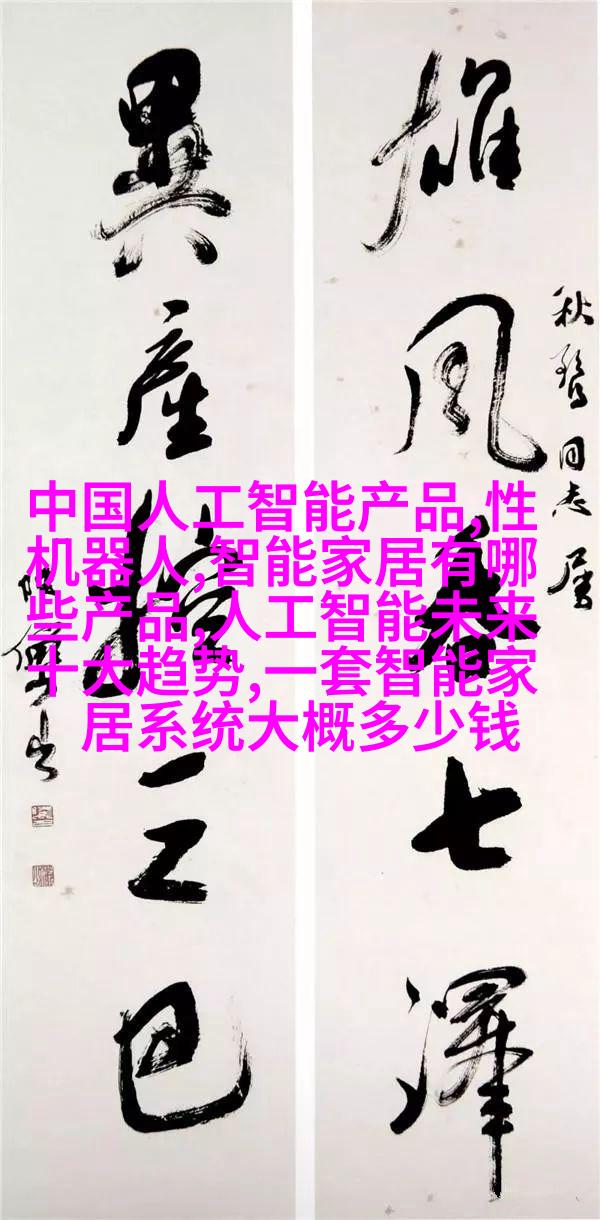 中国人工智能产品,性
机器人,智能家居有哪
些产品,人工智能未来
十大趋势,一套智能家
居系统大概多少钱
雄風七澤
同志属
異産三巴